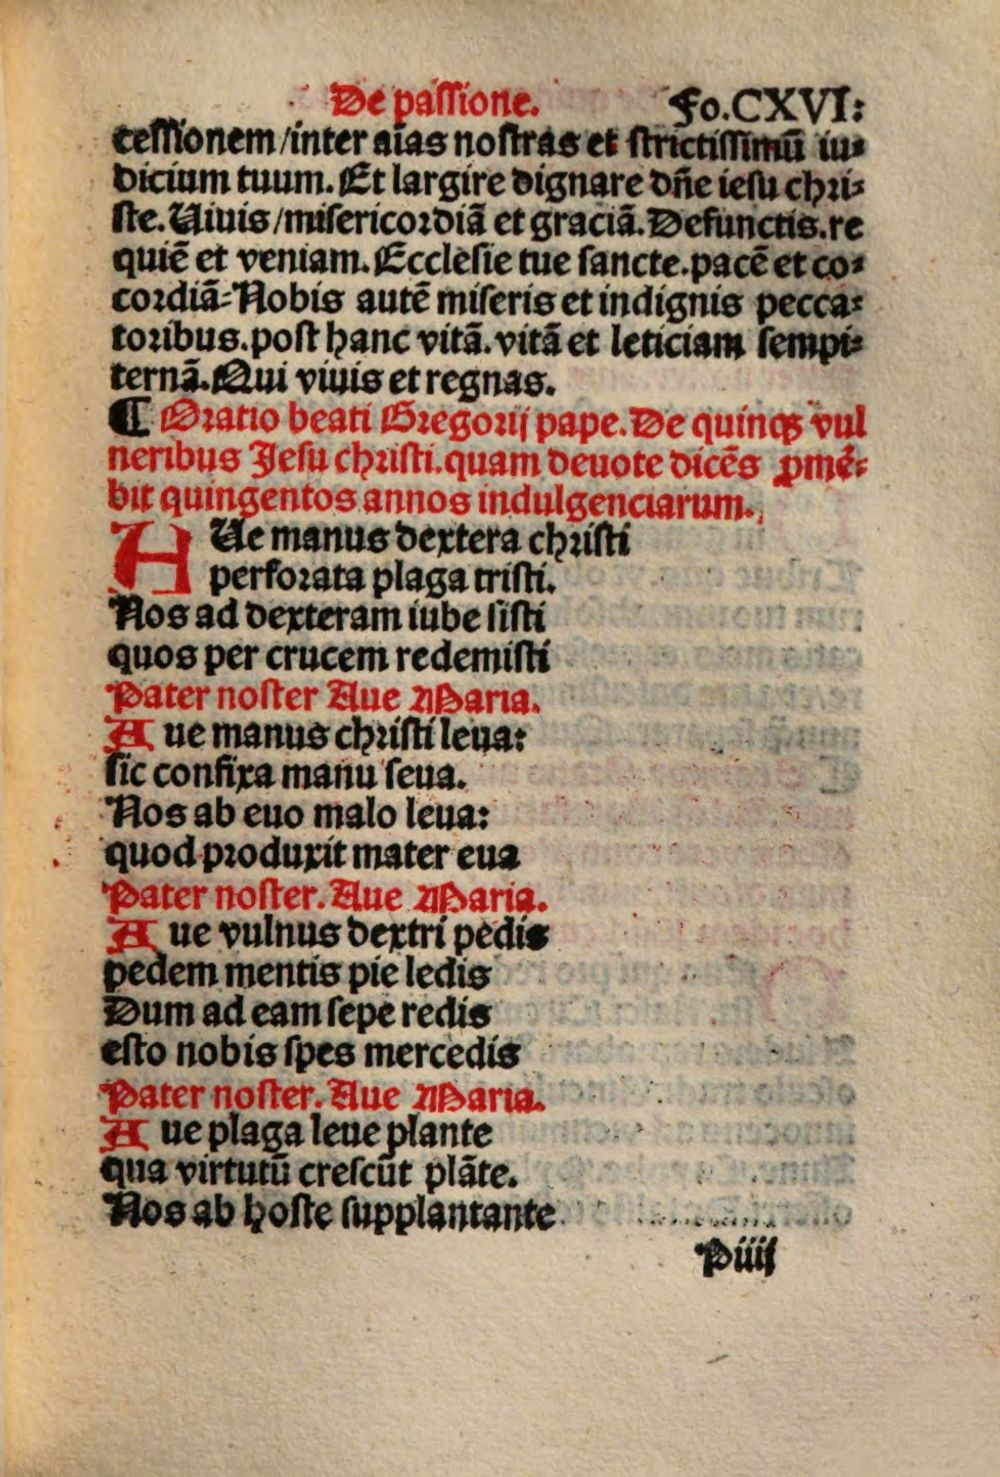 De passione. Fo.CXVI:
cessionem/inter aias nostras et strictissimū iu⸗
dicium tuum. Et largire dignare dn̄e iesu chri⸗
ste. Uiuis/misericordiā et graciā. Defunctis. re
quiē et veniam. Ecclesie tue sancte. pacē et co⸗
cordiā: Nobis autē miseris et indignis pecca⸗
toribus. post hanc vitā. vitā et leticiam sempi⸗
ternā. Qui viuis et regnas.
¶ Oratio beati Gregorij pape. De quinqꝫ vul
neribus Jesu christi. quam deuote dicēs ꝓmē⸗
bit quingentos annos indulgenciarum.
AUe manus dextera christi
perforata plaga tristi.
Nos ad dexteram iube sisti
quos per crucem redemisti
Pater noster Aue Maria.
Aue manus christi leua:
sic confixa manu seua.
Nos ab euo malo leua:
quod produxit mater eua
Pater noster. Aue Maria.
Aue vulnus dextri pedis
pedem mentis pie ledis
Dum ad eam sepe redis
esto nobis spes mercedis
Pater noster. Aue Maria.
Aue plaga leue plante
qua virtutū crescūt plāte.
Nos ab hoste supplantante
Piiij